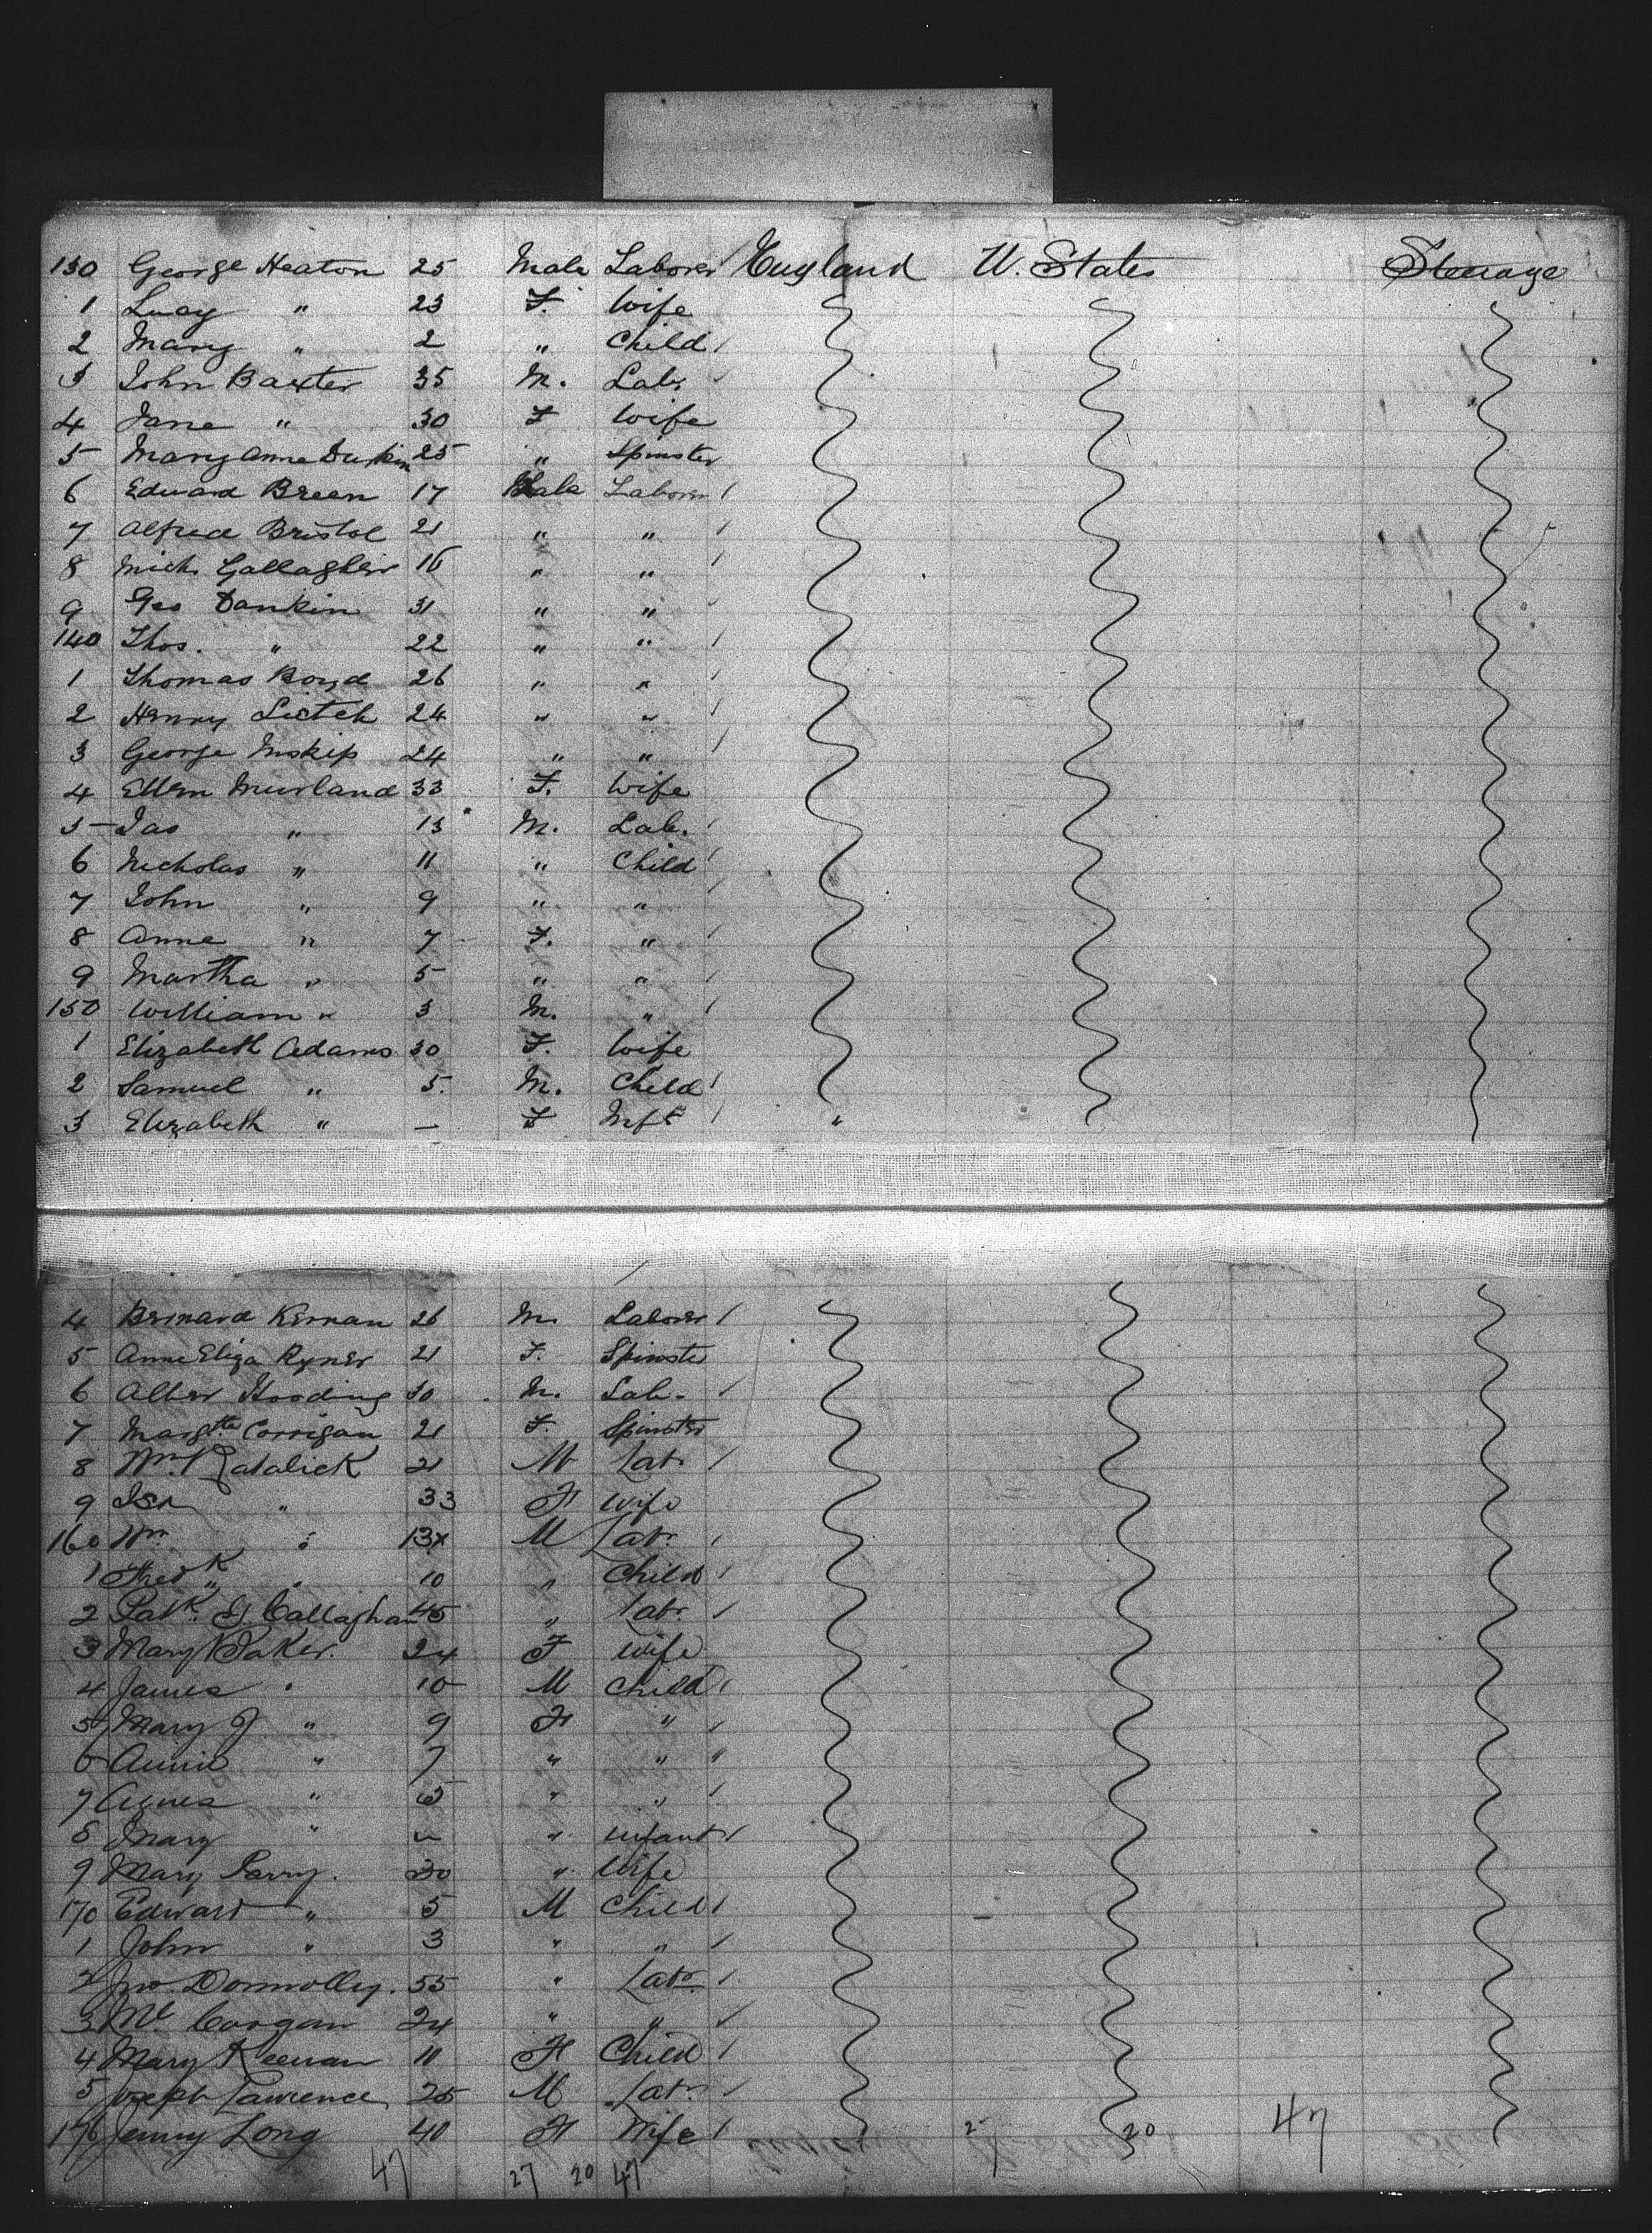 130 George Heaton 25 Male Laborer England U. States Steerage
1 Lucy " 23 F. Wife
2 Mary " 2 " Child /
3 John Baxter 35 M. Labr /
4 Jane " 30 F Wife
5 Mary Anne 25 " Spinster
6 Edward Breen 17 Male Laborer /
7 Alfred Bristol 21 " " /
8 Mich. Gallagher 16 " " /
9 Geo Dankin 31 " " /
140 Thos. " 22 " " /
1 Thomas Boyd 26 " " /
2 Henry 24 " " /
3 George Inskip 24 " " /
4 Ellen Murland 33 F. Wife
5 Jas " 13 M. Lab. /
6 Nicholas " 11 " Child /
7 John " 9 " " /
8 Anne " 7 F. " /
9 Martha " 5 " " /
150 William " 3 M. " /
1 Elizabeth Adams 30 F. Wife
2 Samuel " 5 M. Child /
3 Elizabeth " — F Inft / "
4 Bernard Kernan 26 M. Laborer /
5 Anne Eliza Ryner 21 F. Spinster
6 Alber Gooding 30 M. Lab. /
7 Margtte Corrigan 21 F. Spinster
8 Wm. 21 M Labr /
9 " 33 F Wife
160 Wm " 13x M Labr /
1 Fredk " 10 " Child /
2 Patk. Callaghan 45 " Labr /
3 Mary Baker. 24 F Wife
4 James " 10 M Child /
5 Mary J. " 9 F " /
6 Annie " 7 " " "
7 Agnes " 5 " " /
8 Mary " " infant /
9 Mary Parry. 30 " Wife
170 Edward " 5 M Child /
1 John " 3 " " /
2 Jno. Donnolly. 55 " Labr /
3 Coogan 24 " " /
4 Mary Keenan 11 F Child /
5 Joseph Lawrence 25 M Labr /
176 Jenny Long 40 F Wife / 2 20 47
47 27 20 47